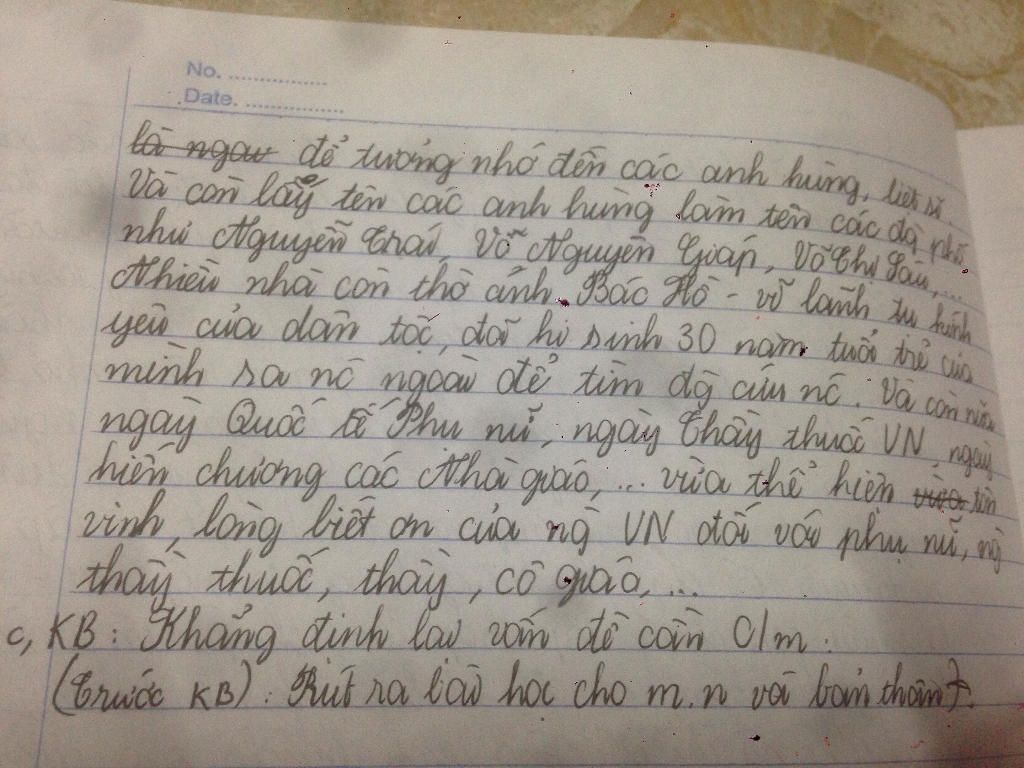 No. ................
Date. ................
là ngay để tưởng nhớ đến các anh hùng, liệt sĩ.
Và còn lấy tên các anh hùng làm tên các đg phố
như Nguyễn Trãi, Võ Nguyên Giáp, Võ Thị Sáu,...
Nhiều nhà còn thờ ảnh Bác Hồ - vĩ lãnh tụ kính
yêu của dân tộc, đã hi sinh 30 năm tuổi trẻ của
mình ra nc ngoài để tìm đg cứu nc. Và còn nữa
ngày Quốc tế Phụ nữ, ngày Thầy thuốc VN, ngày
hiến chương các Nhà giáo, ... vừa thể hiện vừa tôn
vinh, lòng biết ơn của ng VN đối với phụ nữ, ng
thầy thuốc, thầy, cô giáo, ...
c, KB: Khẳng định lại vấn đề cần C/m.
(Trước KB): Rút ra bài học cho m.n và bản thân.